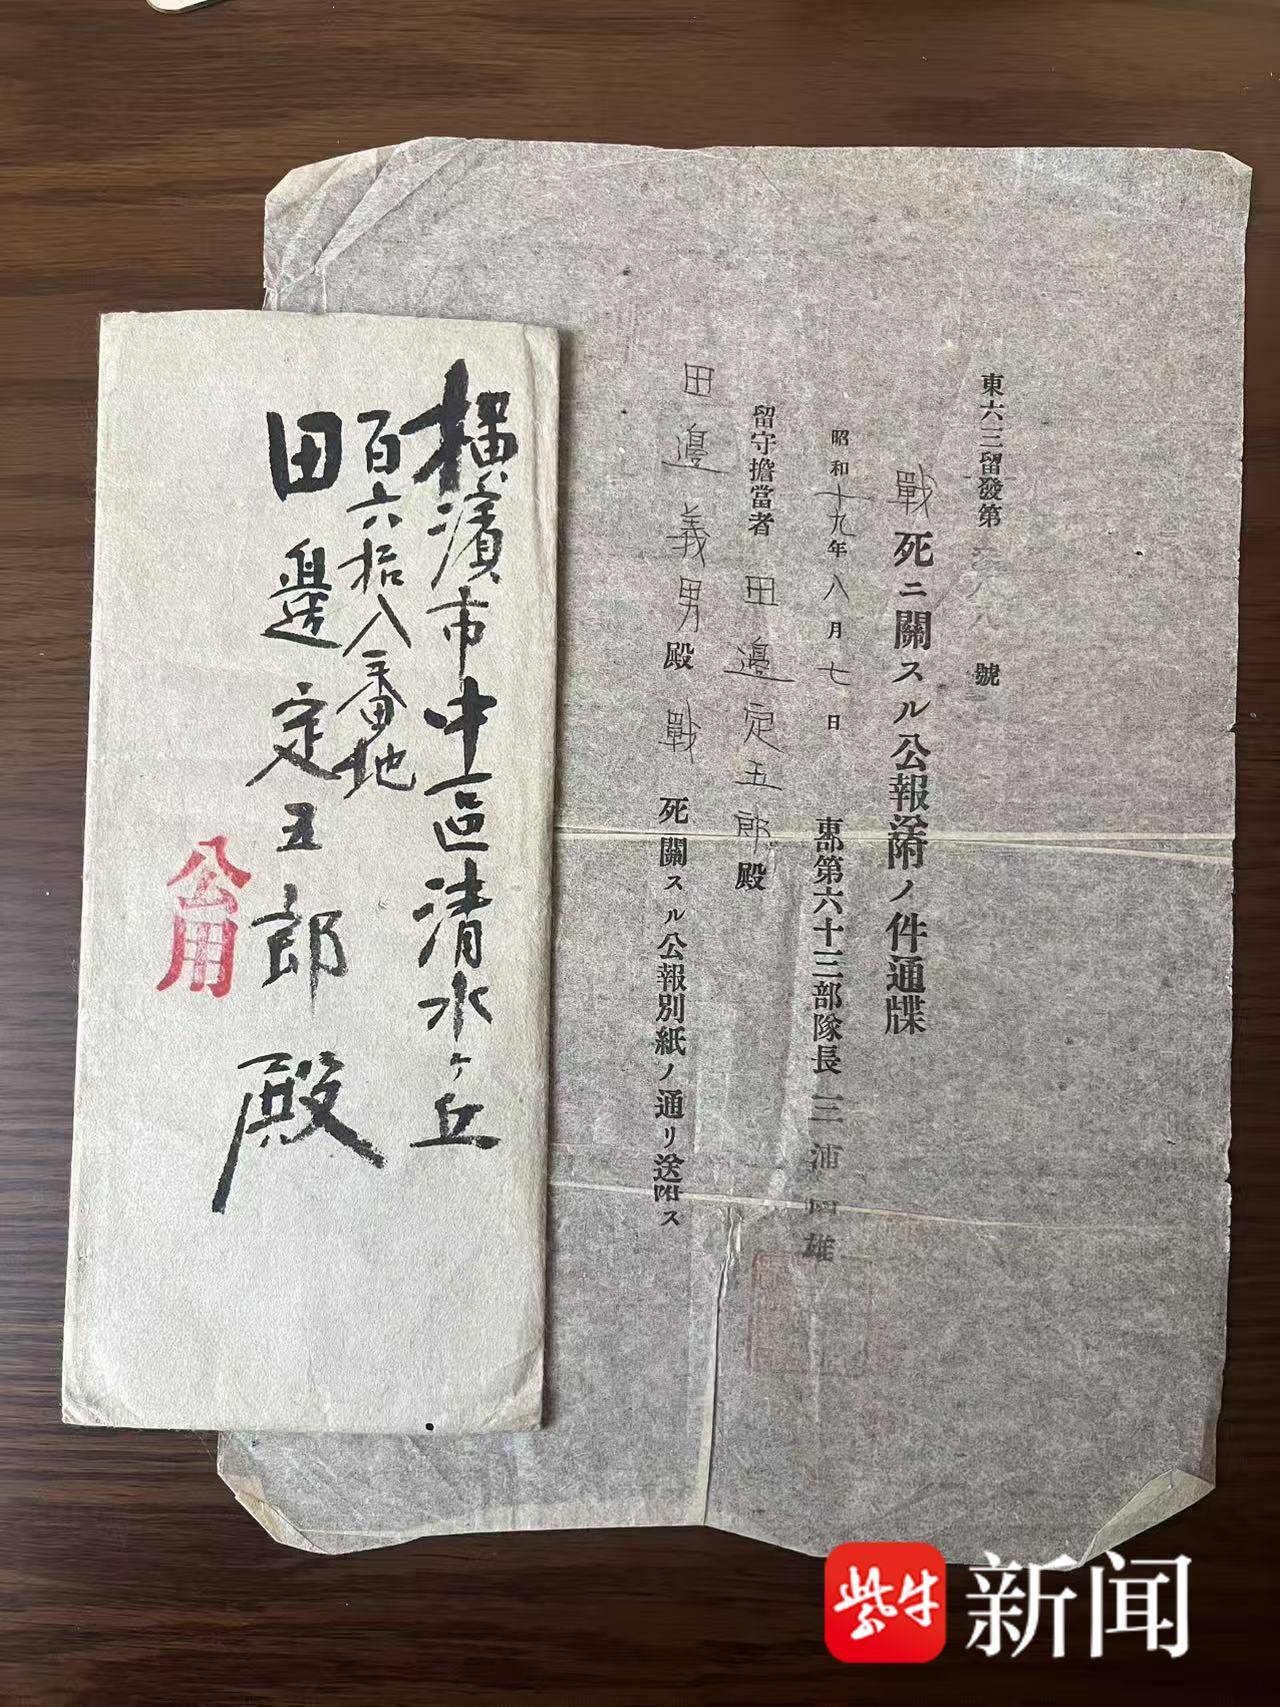 東六三留發第 六八號
戰死ニ關スル公報送附ノ件通牒
昭和十九年八月七日 東部第六十三部隊長 三浦 雄
留守擔當者 田邊定五郎殿
田邊義男殿戰死關スル公報別紙ノ通リ送附ス
橫濱市中區清水ヶ丘
百六拾八番地
田邊定五郎殿
公用
紫牛新闻